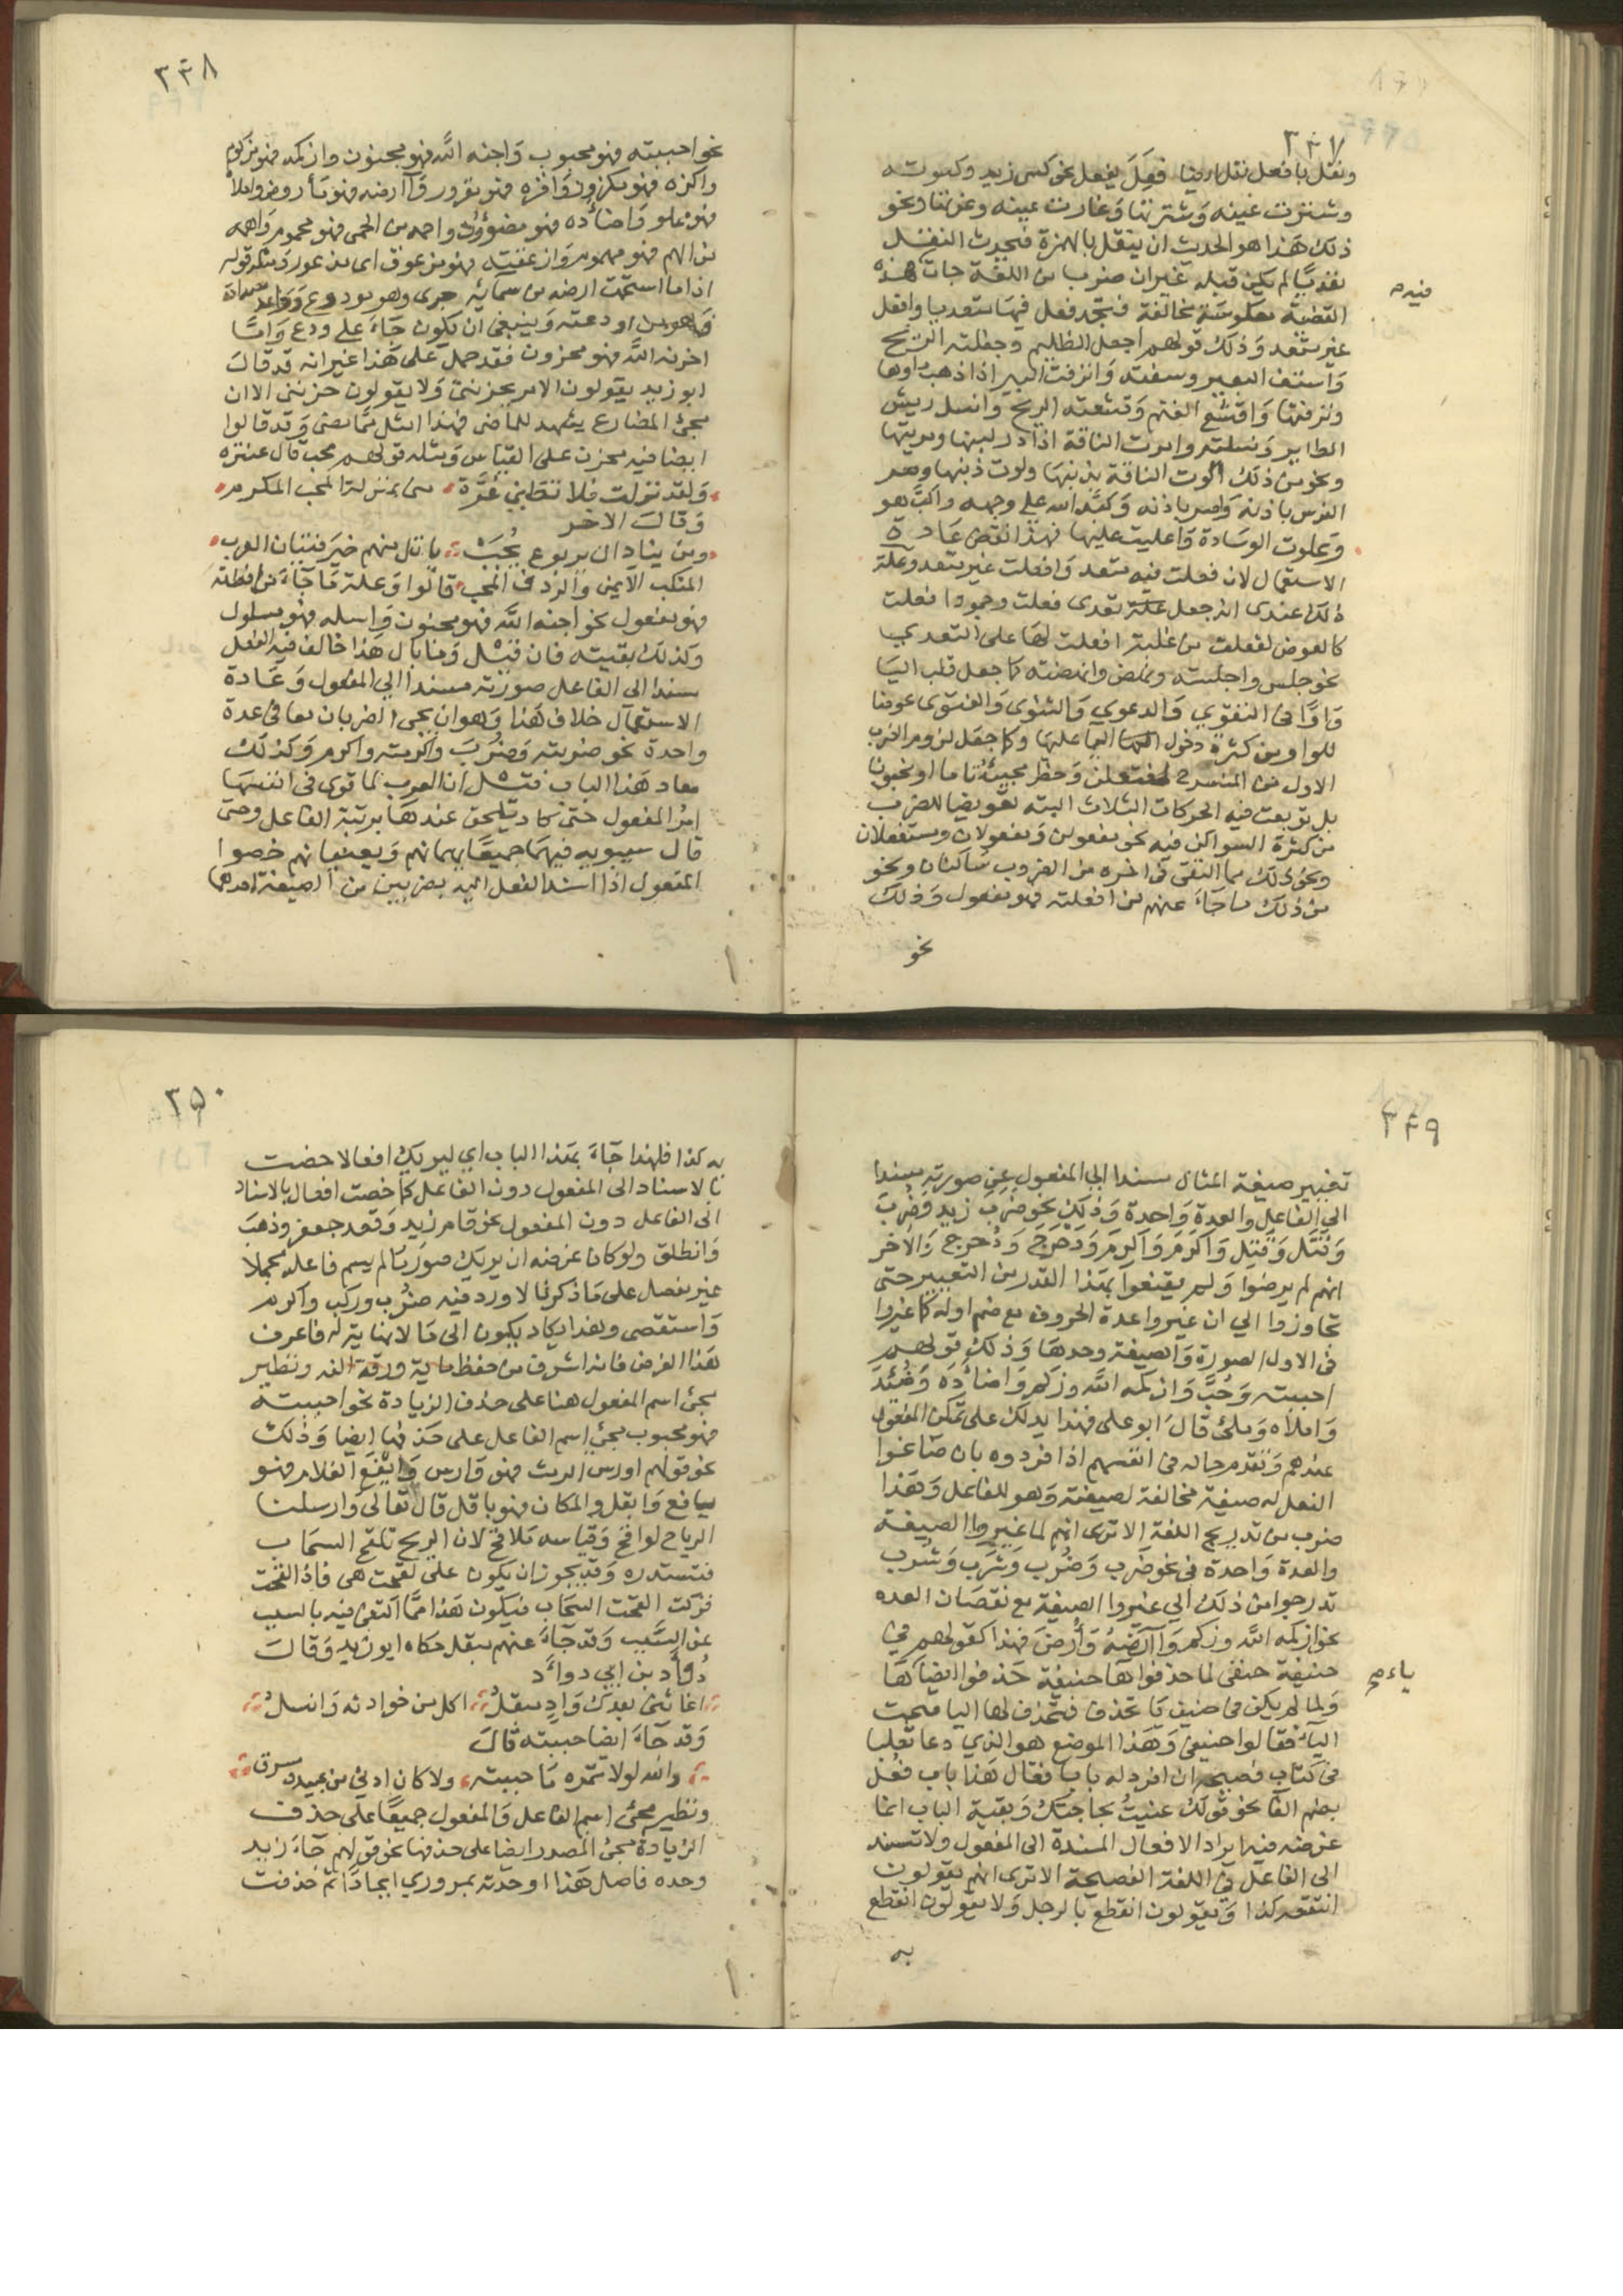 ٣٤٧
ونقل بافعل نقل ايضا فعل يفعل نحو كسى زيد وكسوته
وشترت عينه وشترتها وعارت عينه وعرتها ونحو
ذلك هذا هو الحديث ان ينقل بالهمزة فيحدث النقل
تعديا لم يكن قبله غير ان ضربا من اللغة جات هذه
فيه م
القضية معكوسة مخالفة فتجد فعل فيها متعديا وافعل
غير متعد وذلك قولهم اجفل الظليم وجفلته الريح
واشنق البعير وشنقته وانزفت البير اذا ذهب ماوها
ونزفتها واقشع الغيم وقشعته الريح وانسل ريش
الطاير ونسلته وامرت الناقة اذا در لبنها ومريتها
ونحو من ذلك الوت الناقة بذنبها ولوت ذنبها وصر
الفرس باذنه واصر باذنه وكبه الله على وجهه واكب هو
وعلوت الوسادة واعليت عليها فهذا نقض عادة
الاستعمال لان فعلت فيه متعد وافعلت غير متعد وعلة
ذلك عندى انه جعل علة تعدى فعلت وجمود افعلت
كالعوض لفعلت من غلبة افعلت لها على التعدي
نحو جلس واجلسته ونهض وانهضته كما جعل قلب اليا
واوا في التقوي والدعوي والثنوى والفتوى عوضا
للواو من كثرة دخول اليا عليها وكما جعل لزوم الضرب
الاول من المنسرح لمفتعلن وحظر مجيئه تاما او مخبونا
بل توبعت فيه الحركات الثلاث البته تعويضا للضرب
من كثرة السواكن فيه نحو مفعولن ومفعولان ومستفعلان
ونحو ذلك مما التقى في اخره من الضروب ساكنان ونحو
من ذلك ما جاء عنهم من افعلته فهو مفعول وذلك
نحو
٣٤٨
نحو احببته فهو محبوب واجنه الله فهو مجنون وازكمه فهو مزكوم
واكزه فهو مكزوز واقره فهو مقرور وآرضه فهو مأروض واملأه
فهو مملو واضأده فهو مضؤود واحمه من الحمى فهو محموم واهمه
من الهم فهو مهموم وازعقته فهو مزعوق اى مذعور ومثله قوله
اذا ما استحمت ارضه من سمايه جرى وهو مودوع وواعد مصدق
فهو من اودعته وينبغى ان يكون جاء على ودع واما
احزنه الله فهو محزون فقد حمل على هذا غير انه قد قال
ابو زيد يقولون الامر يحزننى ولا يقولون حزننى الا ان
مجئ المضارع يشهد للماضى فهذا امثل مما مضى وقد قالوا
ايضا فيه محزن على القياس ومثله قولهم محب قال عنترة
ولقد نزلت فلا تظني غيره منى بمنزلة المحب المكرم
وقال الاخر
ومن يناد ال يربوع يجب ياتك منهم خير فتيان العرب
المنكب الايمن والردف المحب قالوا وعلة ما جاء من افعلته
فهو مفعول نحو اجنه الله فهو مجنون واسله فهو مسلول
وكذلك بقيته فان قيل وما بال هذا خالف فيه الفعل
مسندا الى الفاعل صورته مسندا الى المفعول وعادة
الاستعمال خلاف هذا وهو ان يجى الضربان معا فى عدة
واحدة نحو ضربته وضرب واكرمته واكرم وكذلك
معاد هذا الباب قيل ان العرب لما قوى فى انفسها
امر المفعول حتى كاد يلحق عندها برتبة الفاعل وحتى
قال سيبويه فيهما جميعا يهمانهم ويعنيانهم خصوا
المفعول اذا اسند الفعل اليه بضربين من الصيغة احدهما
٣٤٩
تغيير صيغة المثال مسندا الى المفعول عن صورته مسندا
الى الفاعل والعدة واحدة وذلك نحو ضرب زيد وضرب
وقتل وقتل واكرم واكرم ودحرج ودحرج والاخر
انهم لم يرضوا ولم يقنعوا بهذا القدر من التغيير حتى
تجاوزوا الى ان غيروا عدة الحروف مع ضم اوله كما غيروا
فى الاول الصورة والصيغة وحدها وذلك قولهم
احببته وحب وازكمه الله وزكم واضأده وضئد
واملأه وملئ قال ابو على فهذا يدلك على تمكن المفعول
عندهم وتقدم حاله فى انفسهم اذا فردوه بان صاغوا
الفعل له صيغة مخالفة لصيغته وهو للفاعل وهذا
ضرب من تدريج اللغة الا ترى انهم لما غيروا الصيغة
والعدة واحدة فى نحو ضرب وضرب وشرب وشرب
تدرجوا من ذلك الى غيروا الصيغة مع نقصان العده
نحو ازكمه الله وزكم وآرضه وأرض فهذا كقولهم في
حنيفة حنفى لما حذفوا هاء حنيفة حذفوا ايضا ها
ياء صح
ولما لم يكن فى حنيف تا تحذف فتحذف لها اليا صحت
الياء فقالوا حنيفى وهذا الموضع هو الذي دعا ثعلبا
فى كتاب فصيحه ان افرد له بابا فقال هذا باب فعل
بضم الفا نحو قولك عنيت بحاجتك وبقية الباب انما
غرضه فيه ايراد الافعال المسندة الى المفعول ولا تسند
الى الفاعل في اللغة الفصيحة الا ترى انهم يقولون
انتقع كذا ويقولون انقطع بالرجل ولا يقولون انقطع
به
٣٥٠
به كذا فلهذا جاء بهذا الباب اي ليريك افعالا خصت
بالاسناد الى المفعول دون الفاعل كما خصت افعال بالاسناد
الى الفاعل دون المفعول نحو قام زيد وقعد جعفر وذهب
وانطلق ولو كان غرضه ان يريك صورة ما لم يسم فاعله مجملا
غير مفصل على ما ذكرنا لاورد فيه ضرب وركب واكرم
واستقصى وهذا يكاد يكون الى ما لا نهاية له فاعرف
هذا الغرض فانه اشرف من حفظ ماية ورقة لغه ونظير
مجئ اسم المفعول هنا على حذف الزيادة نحو احببته
فهو محبوب مجئ اسم الفاعل على حذفها ايضا وذلك
نحو قولهم اورس الرمث فهو وارس وايفع الغلام فهو
يافع وابقل المكان فهو باقل قال تعالى وارسلنا
الرياح لواقح وقياسه ملاقح لان الريح تلقح السحاب
فتستدره وقد يجوز ان يكون على لقحت هى فاذا لقحت
فزكت القحت السحاب فيكون هذا مما اكتفى فيه بالسبب
عن المسبب وقد جاء عنهم مبقل حكاه ابو زيد وقال
دؤاد بن ابي دواد
اعاشنى بعدك واد مبقل اكل من حوذانه وانسل
وقد جاء ايضا حببته قال
والله لولا تمره ما حببته ولا كان ادنى من عبيد ومشرق
ونظير مجئ اسم الفاعل والمفعول جميعا على حذف
الزيادة مجئ المصدر ايضا على حذفها نحو قولهم جاء زيد
وحده فاصل هذا اوحدته بمروري ايحادا ثم حذفت